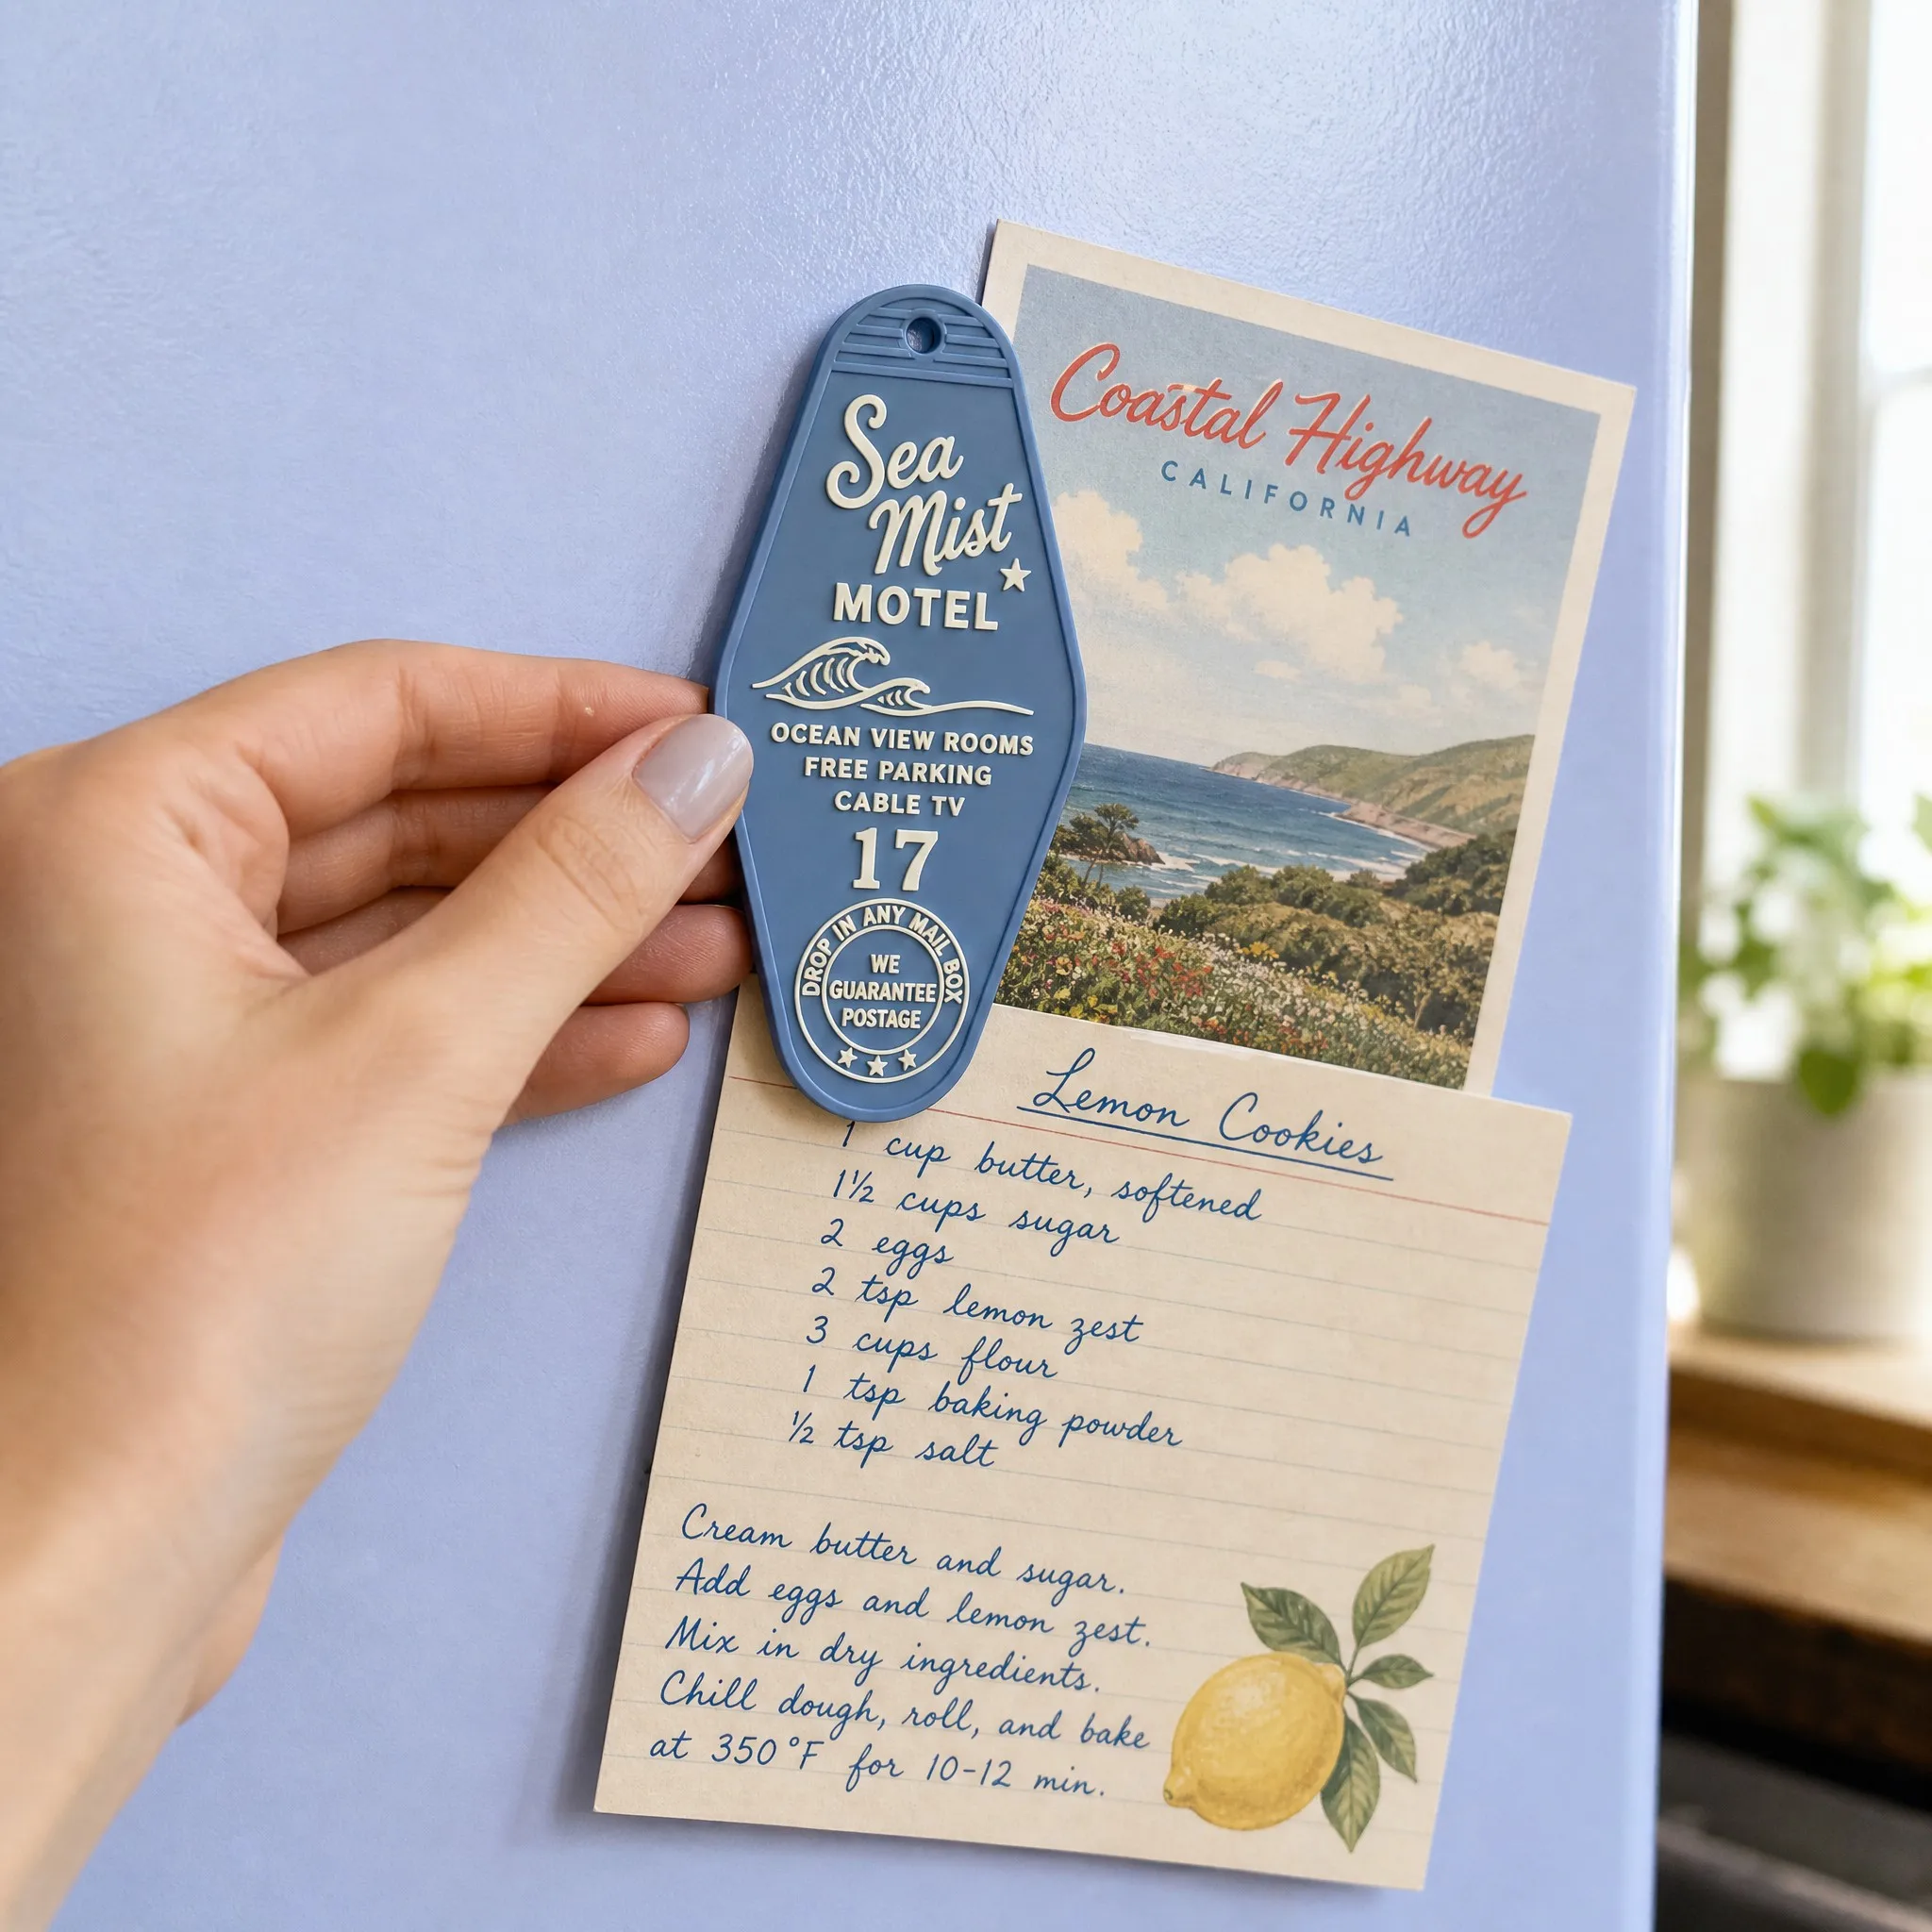 Sea
Mist
MOTEL
OCEAN VIEW ROOMS
FREE PARKING
CABLE TV
17
DROP IN ANY MAIL BOX
WE
GUARANTEE
POSTAGE
Coastal Highway
CALIFORNIA
Lemon Cookies
1 cup butter, softened
1½ cups sugar
2 eggs
2 tsp lemon zest
3 cups flour
1 tsp baking powder
½ tsp salt
Cream butter and sugar.
Add eggs and lemon zest.
Mix in dry ingredients.
Chill dough, roll, and bake
at 350°F for 10-12 min.